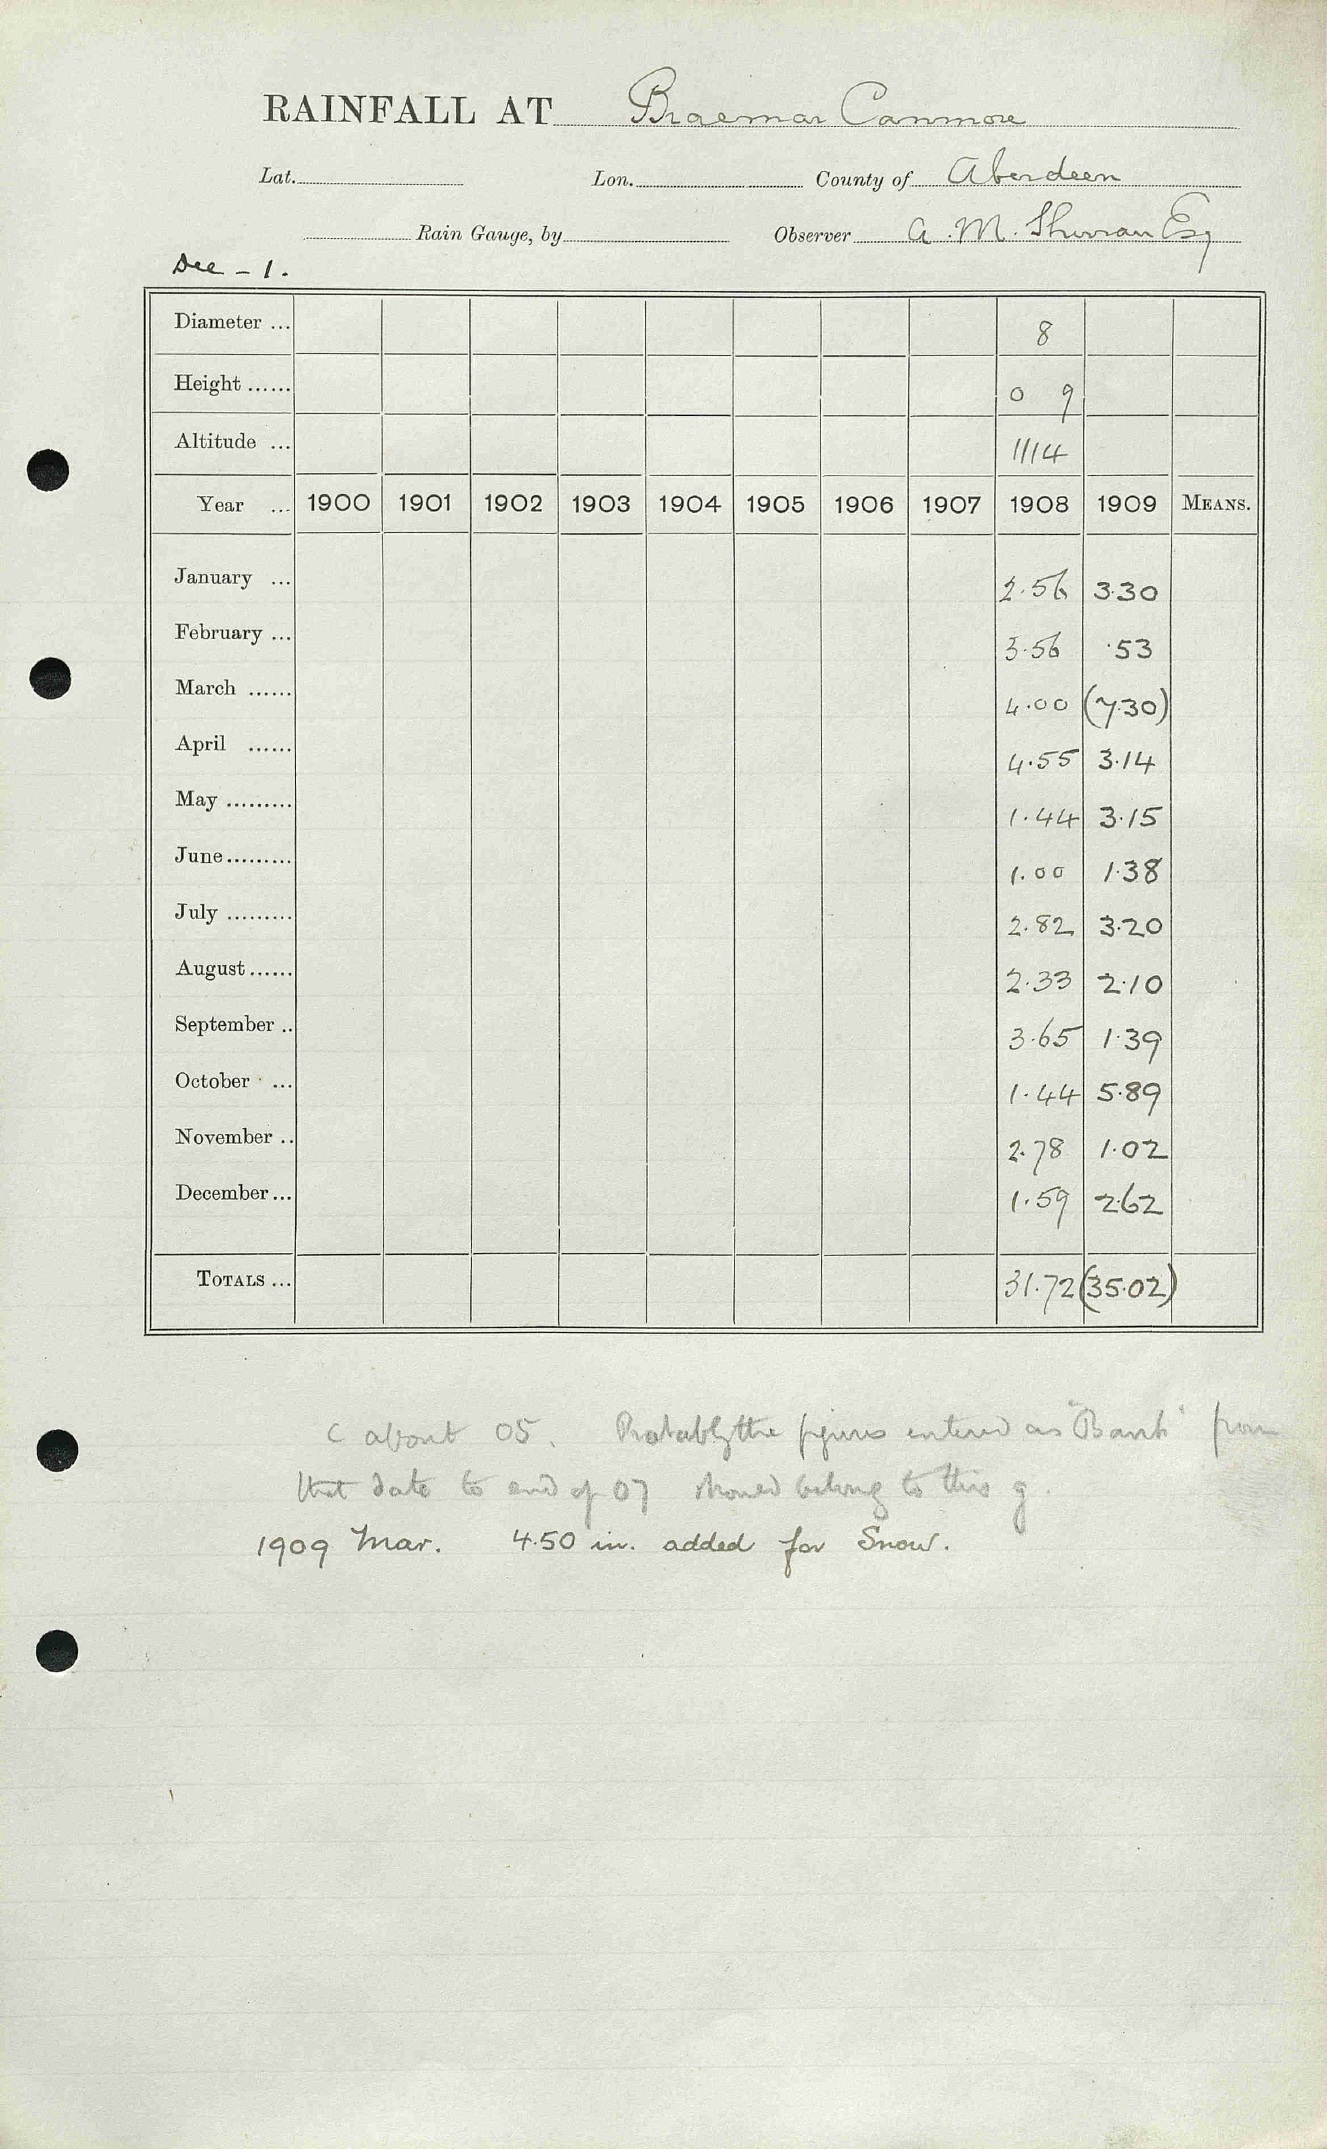 RAINFALL AT Braemar Canmore
Lat. Lon. County of Aberdeen
Rain Gauge, by Observer A. M. Esq
Dee - 1.
Diameter ... 8
Height ...... 0 9
Altitude ... 1114
Year ... 1900 1901 1902 1903 1904 1905 1906 1907 1908 1909 MEANS.
January ... 2.56 3.30
February ... 3.56 .53
March ...... 4.00 (7.30)
April ...... 4.55 3.14
May ......... 1.44 3.15
June ......... 1.00 1.38
July ......... 2.82 3.20
August ...... 2.33 2.10
September .. 3.65 1.39
October ... 1.44 5.89
November .. 2.78 1.02
December ... 1.59 2.62
TOTALS ... 31.72 (35.02)
C about 05. Probably the figures entered as "Bank" from
that date to end of 07 should belong to this g.
1909 Mar. 4.50 in. added for Snow.